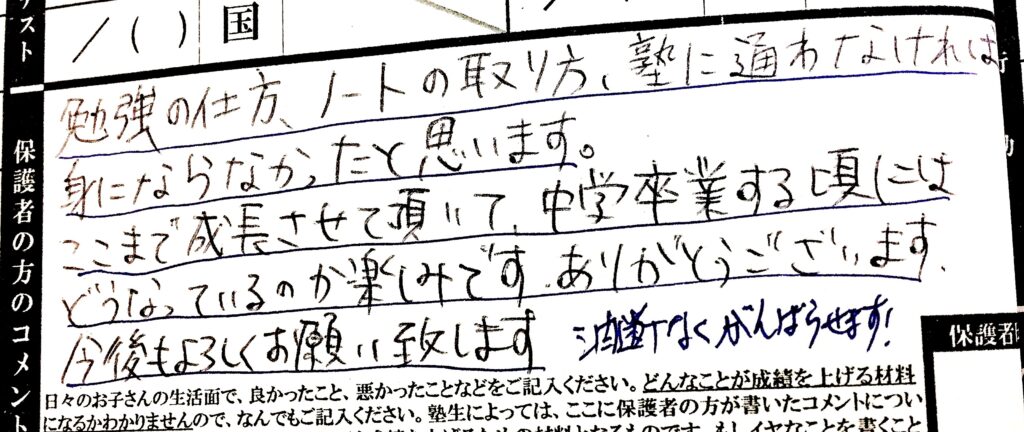 テスト
/ ( ) 国
保護者の方のコメント
勉強の仕方、ノートの取り方、塾に通わなければ
身にならなかったと思います。
ここまで成長させて頂いて、中学卒業する頃には
どうなっているのか楽しみです。ありがとうございます。
今後もよろしくお願い致します
油断なくがんばらせます!
保護者
日々のお子さんの生活面で、良かったこと、悪かったことなどをご記入ください。どんなことが成績を上げる材料
になるかわかりませんので、なんでもご記入ください。塾生によっては、ここに保護者の方が書いたコメントについ